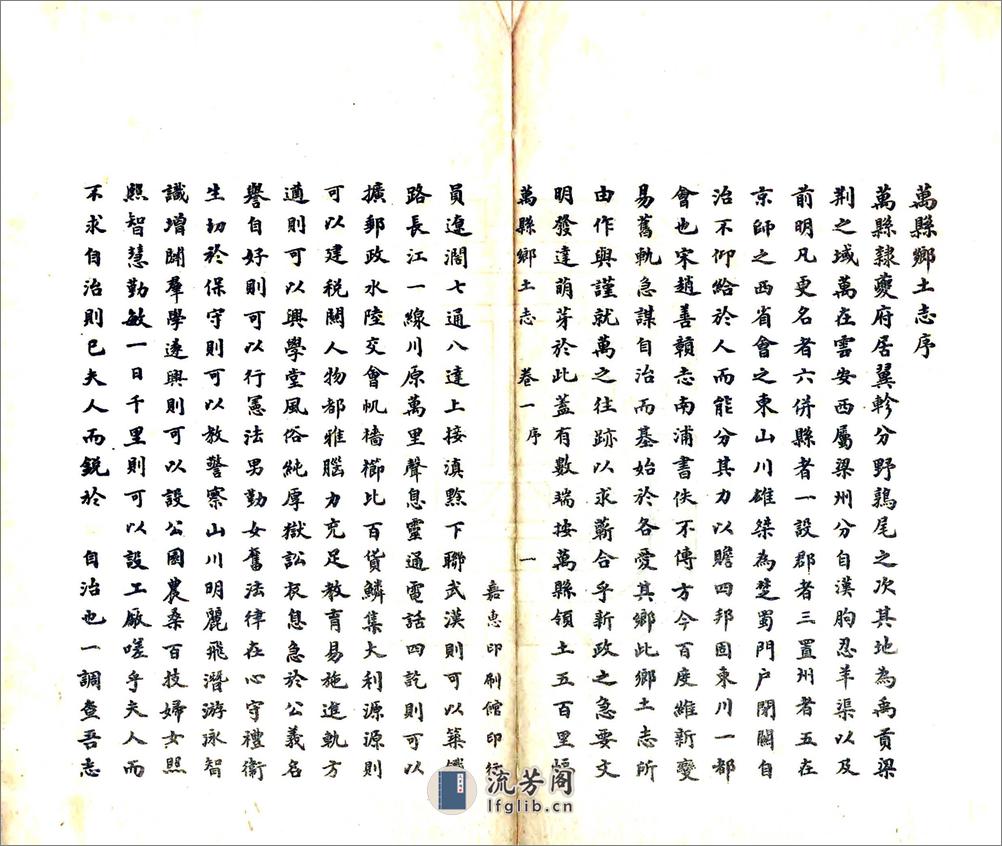 萬縣鄉土志序
萬縣隸夔府居翼軫分野鶉尾之次其地為禹貢梁
荆之域萬在雲安西屬梁州分自漢朐忍羊渠以及
前明凡更名者六併縣者一設郡者三置州者五在
京師之西省會之東山川雄桀為楚蜀門戶閉關自
治不仰給於人而能分其力以贍四邦固東川一都
會也宋趙善贛志南浦書佚不傳方今百度維新變
易舊軌急謀自治而基始於各愛其鄉此鄉土志所
由作與謹就萬之往跡以求蘄合乎新政之急要文
明發達萌芽於此蓋有數端按萬縣領土五百里幅
萬縣鄉土志 卷一 序 一
嘉惠印刷館印行
員遼濶七通八達上接滇黔下聯武漢則可以築鐵
路長江一線川原萬里聲息靈通電話四訖則可以
擴郵政水陸交會帆檣櫛比百貨鱗集大利源源則
可以建税關人物都雅腦力充足教育易施進軌方
遒則可以興學堂風俗純厚獄訟衰息急於公義名
譽自好則可以行憲法男勤女奮法律在心守禮衛
生切於保守則可以教警察山川明麗飛潛游泳智
識增闢羣學遂興則可以設公園農桑百技婦女熙
熙智慧勤敏一日千里則可以設工厰嗟乎夫人而
不求自治則已夫人而銳於 自治也一調查吾志
流芳阁
lfglib.cn